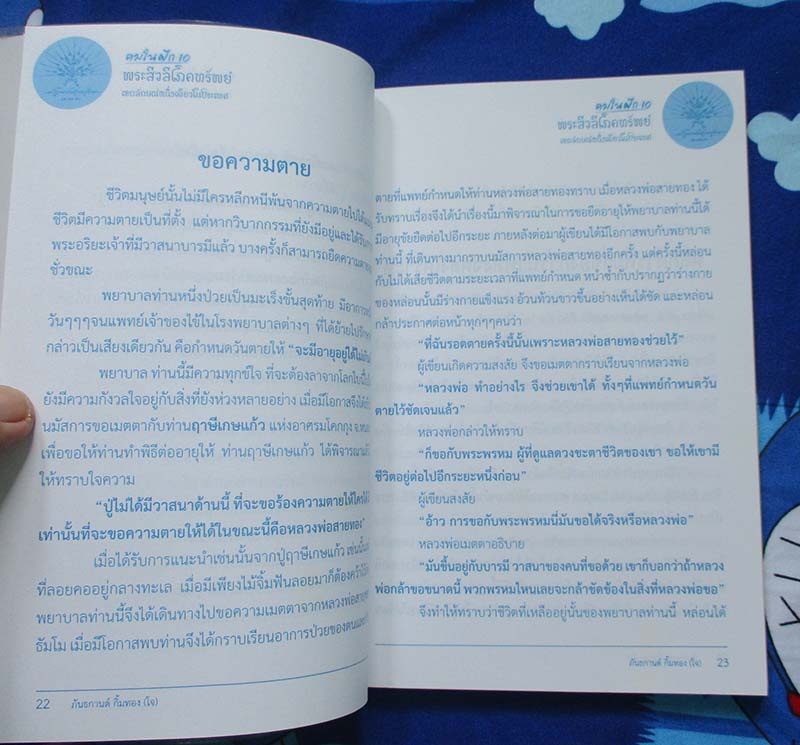 คมในฝัก 10
พระสีวลีโภคทรัพย์
ขอความตาย
ชีวิตมนุษย์นั้นไม่มีใครหลีกหนีพ้นจากความตายไปได้
ชีวิตมีความตายเป็นที่ตั้ง แต่หากวิบากกรรมที่ยังมีอยู่และได้รับ
พระอริยะเจ้าที่มีวาสนาบารมีแล้ว บางครั้งก็สามารถยืดความตาย
ชั่วขณะ
พยาบาลท่านหนึ่งป่วยเป็นมะเร็งขั้นสุดท้าย มีอาการ
วันๆๆๆจนแพทย์เจ้าของไข้ในโรงพยาบาลต่างๆ ที่ได้ย้ายไป
กล่าวเป็นเสียงเดียวกัน คือกำหนดวันตายให้ “จะมีอายุอยู่ได้ไม่
พยาบาล ท่านนี้มีความทุกข์ใจ ที่จะต้องลาจากโลกใบนี้
ยังมีความกังวลใจอยู่กับสิ่งที่ยังห่วงหลายอย่าง เมื่อมีโอกาสจึงได้
นมัสการขอเมตตากับท่านฤาษีเกษแก้ว แห่งอาศรมโคกกุง จ.
เพื่อขอให้ท่านทำพิธีต่ออายุให้ ท่านฤาษีเกษแก้ว ได้พิจารณา
ให้ทราบใจความ
“ปู่ไม่ได้มีวาสนาด้านนี้ ที่จะขอร้องความตายให้ใครได้
เท่านั้นที่จะขอความตายให้ได้ในขณะนี้คือหลวงพ่อสายทอง”
เมื่อได้รับการแนะนำเช่นนั้นจากปู่ฤาษีเกษแก้ว เช่นนั้น
ที่ลอยคออยู่กลางทะเล เมื่อมีเพียงไม้จิ้มฟันลอยมาก็ต้องคว้า
พยาบาลท่านนี้จึงได้เดินทางไปขอความเมตตาจากหลวงพ่อสายทอง
ธัมโม เมื่อมีโอกาสพบท่านจึงได้กราบเรียนอาการป่วยของตน
22 ภันธกานต์ กิ้มทอง (โจ)
คมในฝัก 10
พระสีวลีโภคทรัพย์
ตายที่แพทย์กำหนดให้ท่านหลวงพ่อสายทองทราบ เมื่อหลวงพ่อสายทอง ได้
รับทราบเรื่องจึงได้นำเรื่องนี้มาพิจารณาในการขอยืดอายุให้พยาบาลท่านนี้ได้
มีอายุขัยยืดต่อไปอีกระยะ ภายหลังต่อมาผู้เขียนได้มีโอกาสพบกับพยาบาล
ท่านนี้ ที่เดินทางมากราบนมัสการหลวงพ่อสายทองอีกครั้ง แต่ครั้งนี้หล่อน
กับไม่ได้เสียชีวิตตามระยะเวลาที่แพทย์กำหนด หนำซ้ำกับปรากฎว่าร่างกาย
ของหล่อนนั้นมีร่างกายแข็งแรง อ้วนท้วนขาวขึ้นอย่างเห็นได้ชัด และหล่อน
กล้าประกาศต่อหน้าทุกๆๆคนว่า
“ที่ฉันรอดตายครั้งนี้นั้นเพราะหลวงพ่อสายทองช่วยไว้”
ผู้เขียนเกิดความสงสัย จึงขอเมตตากราบเรียนจากหลวงพ่อ
“หลวงพ่อ ทำอย่างไร จึงช่วยเขาได้ ทั้งๆที่แพทย์กำหนดวัน
ตายไว้ชัดเจนแล้ว”
หลวงพ่อกล่าวให้ทราบ
“ก็ขอกับพระพรหม ผู้ที่ดูแลดวงชะตาชีวิตของเขา ขอให้เขามี
ชีวิตอยู่ต่อไปอีกระยะหนึ่งก่อน”
ผู้เขียนสงสัย
“อ้าว การขอกับพระพรหมนี่มันขอได้จริงหรือหลวงพ่อ”
หลวงพ่อเมตตาอธิบาย
“มันขึ้นอยู่กับบารมี วาสนาของคนที่ขอด้วย เขาก็บอกว่าถ้าหลวง
พ่อกล้าขอขนาดนี้ พวกพรหมไหนเลยจะกล้าขัดข้องในสิ่งที่หลวงพ่อขอ”
จึงทำให้ทราบว่าชีวิตที่เหลืออยู่นั้นของพยาบาลท่านนี้ หล่อนได้
ภันธกานต์ กิ้มทอง (โจ) 23